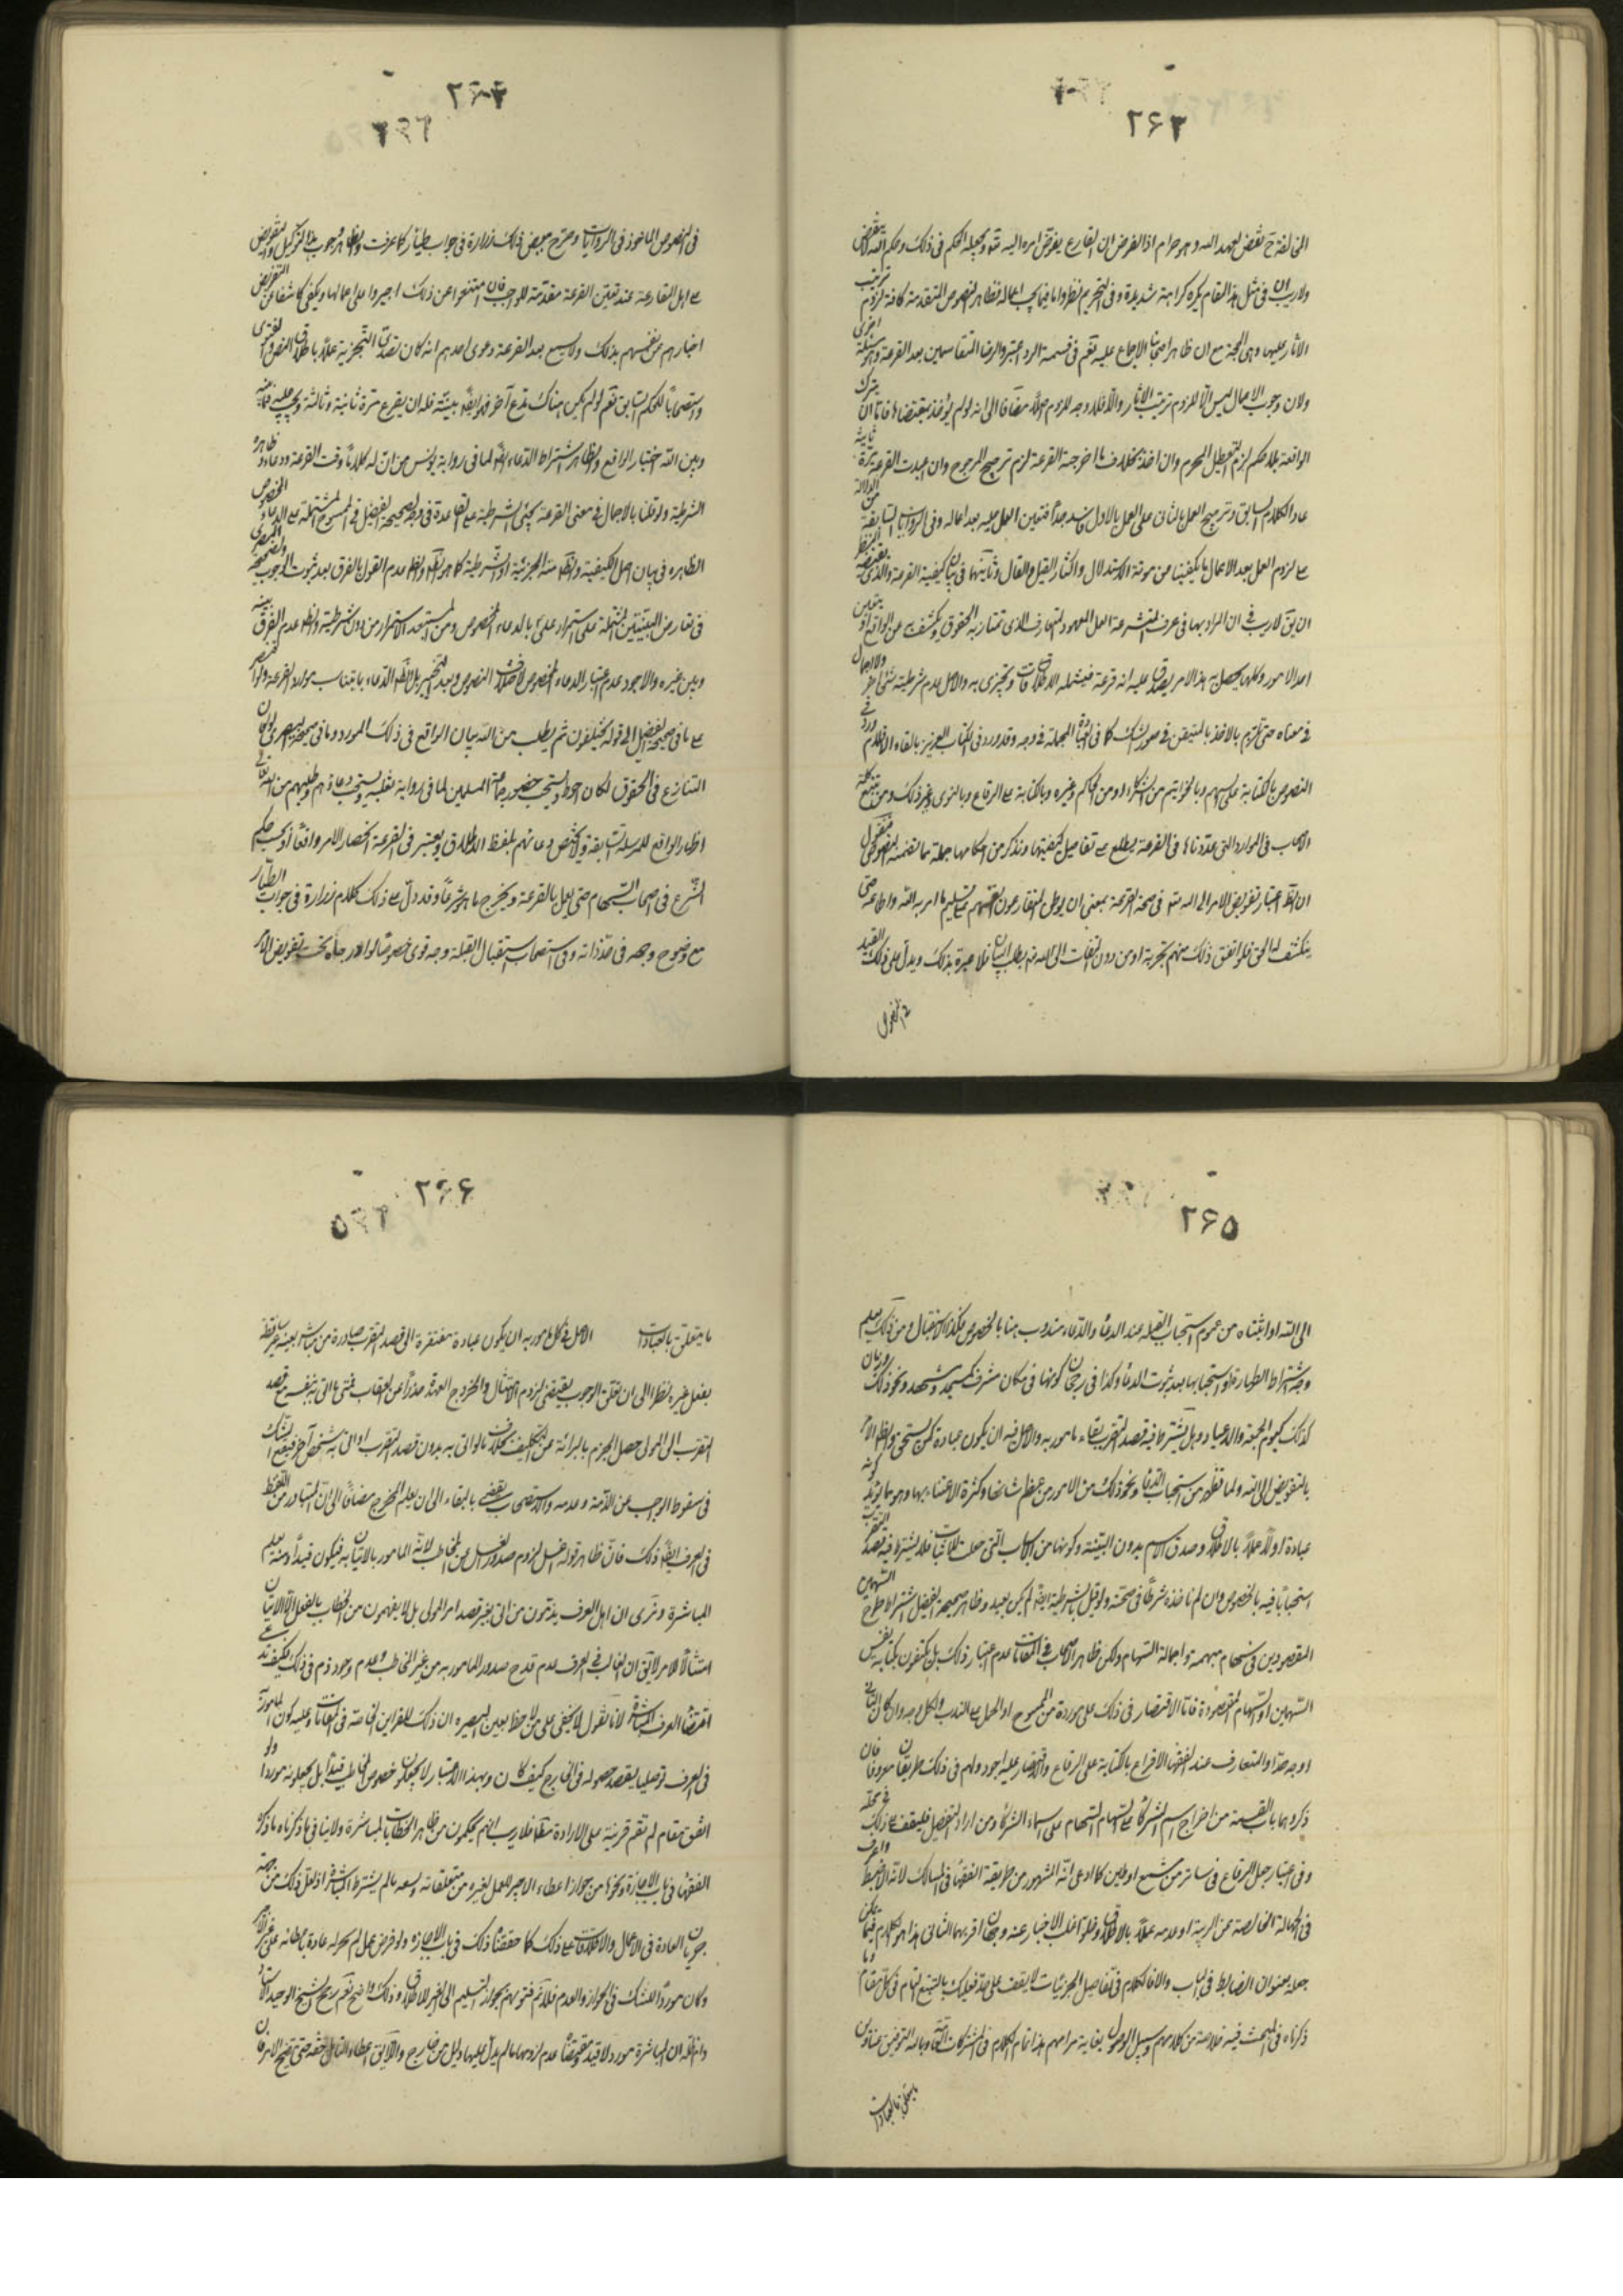 ۲۶۳
المخالفة ح نقض لعهد الله وهو حرام اذ الفرض ان القارع يفوض امره اليه تعالى ويجعله الحكم في ذلك وحكم الله لا ينقض
ولا ريب ان في مثل هذا المقام يكره كراهة شديدة وفي التحريم نظر واما فيما يجب اعماله فظاهر النصوص المتقدمة كافة لزوم ترتب
الآثار عليها وهي الحجة مع ان ظاهر اصحابنا الاجماع عليه نعم في قسمة الرد اعتبروا رضا المتقاسمين بعد القرعة وهو مسئلة اخرى
ولان وجوب الاعمال ليس الا للزوم ترتيب الآثار والا فلا وجه للزوم اصلا مضافا الى انه لو لم يؤخذ بمقتضاها فاما ان يترك
الواقعة بلا حكم لزم التعطيل المحرم وان اخذ بخلاف ما اخرجته القرعة لزم ترجيح المرجوح وان اعيدت القرعة مرة ثانية
عاد الكلام السابق وترجيح العمل بالثاني على العمل بالاول فاسد جدا فتعين العمل عليه بعد اعماله وفي الروايات السابقة من الدلالة
على لزوم العمل بعد الاعمال ما يكفينا من مؤنة الاستدلال واكثار القيل والقال وثانيتها في بيان كيفية القرعة والذي يقتضيه النظر
ان يقال لا ريب في ان المراد بها في عرف المتشرعة العمل المعهود المتعارف الذي تمتاز به الحقوق ويكشف عن الواقع او يتعين
احد الامور وكلما يحصل به هذا الامر يصدق عليه انه قرعة فيشمله الاطلاقات ويجتزى به والاصل عدم شرطية شيء آخر ولا اجمال
في معناه حتى نلتزم بالاخذ بالمتيقن في صور الشك كما في العبادة المجملة في وجه وقد ورد في الكتاب العزيز بالقاء الاقلام وورد في
النصوص بالكتابة على السهم وبالخواتيم من الشركاء او من الحاكم وغيره وبالكتابة على الرقاع وبالنوى وغير ذلك ومن تتبع كلمة
الاصحاب في الموارد التي عددناها في القرعة يطلع على تفاصيل كيفيتها ونذكر من احكامها جملة مما تضمنه النصوص فنقول
ان الظاهر اعتبار تفويض الامر الى الله تعالى في صحة القرعة بمعنى ان يوطن المتقارعون انفسهم على تسليم ما امر به الله واطاعته حتى
ينكشف لهم الحق فلو اتفق ذلك منهم تجربة او من دون التفات الى الله تعالى بطلب البيان فلا عبرة بذلك ويدل على ذلك القيد
في النصوص
۲۶۴
في النصوص المأخوذ في الروايات وصرح ببعض ذلك زرارة في جواب طيار كما عرفت والظاهر وجوب هذا التوكيل والتفويض
على اهل المقارعة عند تعين القرعة مقدمة للواجب فان امتنعوا عن ذلك اجبروا على اعمالها ويكفي كاشفا عن التفويض
اخبارهم عن نفسهم بذلك ولا يسمع بعد القرعة دعوى احدهم انه كان بقصدي التجزية عملا باطلاق النص والفتوى
واستصحابا للحكم السابق نعم لو لم يكن هناك مدع آخر فلا بينة فله ان يقرع مرة ثانية وثالثة ويجب عليه فيما بينه
وبين الله اختيار الواقع والظاهر اشتراط الدعاء ايضا لما في رواية يونس من ان له كلاما وقت القرعة ودعاء وظاهره
الشرطية ولو قلنا بالاجمال في معنى القرعة يجئ الشرطية على القاعدة في وجه وصحيحة الفضيل في الممسوح المشتملة على الدعاء المخصوص
الظاهرة في بيان اصل الكيفية والظاهر منه الجزئية او الشرطية كما هو الظاهر والظاهر عدم القول بالفرق بعد ثبوت الوجوب وصحيحة البصري
في تعارض البينتين المشتملة على استمرار علي ع بالدعاء المخصوص ومن المستبعد الاستمرار من دون شرطية والظاهر عدم الفرق بينه
وبين غيره والاجود عدم اعتبار الدعاء المخصوص لاختلاف النصوص وبعد التخيير بل الظاهر الدعاء بما يناسب موارد القرعة ولو اقتصر
على ما في صحيحة الفضيل الى قوله يختلفون ثم يطلب من الله بيان الواقع في ذلك المورد وما في صحيحة البصري لو كان
التنازع في الحقوق لكان احوط ويستحب حضور جماعة المسلمين لما في رواية ثعلبة ويستحب دعائهم وطلبهم من الله تعالى
اظهار الواقع للمرسلة السابقة ولا يختص دعائهم بلفظ الاطلاق ويعتبر في القرعة انحصار الامر واقعا او بحسب حكم
الشرع في اصحاب السهام حتى يعمل بالقرعة ويخرج ما هو شرعا وقد دل على ذلك كلام زرارة في جواب الطيار
مع وضوح وجهه في حد ذاته وفي استصحاب استقبال القبلة وجه قوي خصوصا لو اندرج تحت تفويض الامر
۲۶۵
الى الله او اثبتناه من عموم استحباب القبلة عند الدعاء والدعاء مندوب هنا بالخصوص فكذا الاستقبال ومن ذلك يعلم
وجه اشتراط الطهارة او استحبابها بعد ثبوت الدعاء وكذا في رجحان كونها في مكان مشرف كمسجد ومشهد ونحو ذلك وزمان
كذلك كيوم الجمعة والاعياد وهل يشترط فيه قصد التقرب بقاء مامور به والاصل فيه ان يكون عبادة كمن يستحق وللظاهر الامر
بالتفويض الى الله ولما تظهر من استحباب الدعاء ونحو ذلك من الامور من عظم شأنها وكثرة الاعتناء بها وهو مما يؤيد كونه
عبادة او لا عملا بالاطلاق وصدق الاسم بدون النية وكونها من الاسباب التي جعلت للاثبات فلا يشترط فيه قصد التقرب
استحبابا فيه بالخصوص وان لم ناخذه شرطا في صحته ولو قيل بالشرطية ايضا لم يكن ببعيد وظاهر صحيحة الفضيل اشتراط طرح السهمين
المقصودين في سهام مبهمة واجالة السهام ولكن ظاهر الاصحاب في المقامات عدم اعتبار ذلك بل يكتفون بكتابة نفس
السهمين او السهام المقصودة فاما الاقتصار في ذلك على مورده من الممسوح او الحمل على الندب ولكل وجه وان كان الثاني
اوجه جدا والمتعارف عند الفقهاء الاقراع بالكتابة على الرقاع والاقتصار عليه اجود ولهم في ذلك طريقان معروفان
ذكروهما باب القسمة من اخراج اسم الشركاء على السهام والسهام على اسماء الشركاء ومن اراد التفصيل فليقف على ذلك في محله
وفي اعتبار جعل الرقاع في ساتر من شمع او طين كما ادعى انه المشهور من طريقة الفقهاء في المسالك لانه الاضبط والعرف
في الجهالة الخالصة عن الريبة او عدمه عملا بالاطلاق وخلو اغلب الاخبار عنه وجهان اقربهما الثاني هذا هو الكلام فيما يمكن
جعله بعنوان الضابط في الباب والا فالكلام في تفاصيل الجزئيات لا يقف على حد فعليك بالتتبع التام في كل مقام وما
ذكرناه في المبحث فيه خلاصة من كلامهم وسبيل الوصول بغاية مرامهم هذا تمام الكلام في المشتركات العامة وبالله التوفيق عناوين
ما يتعلق بالعبادات
۲۶۶
ما يتعلق بالعبادات الاصل في كل مامور به ان يكون عبادة مفتقرة الى قصد التقرب صادرة من مباشر بعينه غير ساقطة
بفعل غيره نظرا الى ان تعلق الوجوب يقتضي لزوم الامتثال والخروج عن العهدة حذرا عن العقاب فمتى ما اتى به بنفسه مع قصد
التقرب الى المولى حصل الجزم بالبرائة عن التكليف بخلاف ما لو اتى به بدون قصد التقرب او اتى به شخص آخر فيقع الشك
في سقوط الوجوب عن الذمة وعدمه والاستصحاب يقضي بالبقاء الى ان يعلم المخرج مضافا الى ان المتبادر من اللفظ
في العرف ايضا ذلك فان ظاهر قوله اغسل لزوم صدور الغسل عن المخاطب لانه المامور بالاتيان به فيكون قيدا ومنه يعلم
المباشرة ونرى ان اهل العرف يذمون من اتى بغير قصد امر المولى بل لا يفهمون من الخطاب بالفعل الا الاتيان
امتثالا للامر لا يقال ان الغالب في العرف عدم قدح صدور المامور به من غير المخاطب وعدم وجود ذم في ذلك فكيف تدعي
اقتضاء العرف المباشرة لانا نقول لا يخفى على من لاحظ بعين البصيرة ان ذلك للقرائن الخاصة في المقامات وغلبة كون المامور به
في العرف توصليا يقصد حصوله في الخارج كيف كان وبهذا الاعتبار لا يجعلون خصوص المخاطب قيدا بل يجعلونه موردا ولو
اتفق مقام لم تقم قرينة على الارادة مطلقا فلا ريب انهم يحكمون من ظاهر الخطابات بالمباشرة ولا ينافي ما ذكرناه ما ذكره
الفقهاء في باب الاجازة ونحوها من جواز اعطاء الاجير للعمل لغيره من متعلقاته وسعه ما لم يشترط المباشرة اذ لعل ذلك من جهة
جريان العادة في الاعمال والاطلاقات على ذلك كما حققنا ذلك في باب الاجازة ولو فرض عمل لم يجر له عادة باعطائه على غير الاجير
وكان موردا للشك في الجواز والعدم فلا نسلم فتويهم بجواز التسليم الى الغير للاطلاق وذلك واضح نعم رجح الشيخ الوحيد الاستاد
دام ظله ان المباشرة مورد لا قيد فمقتضاه عدم لزومها ما لم يدل عليها دليل من خارج واللائق اعطاء التامل حقه حتى يتضح الامر فان